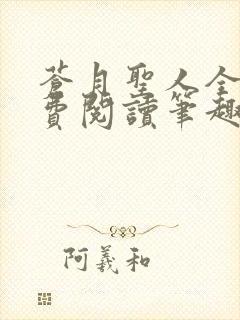 蒼月聖人全
費閱讀筆趣
阿義和